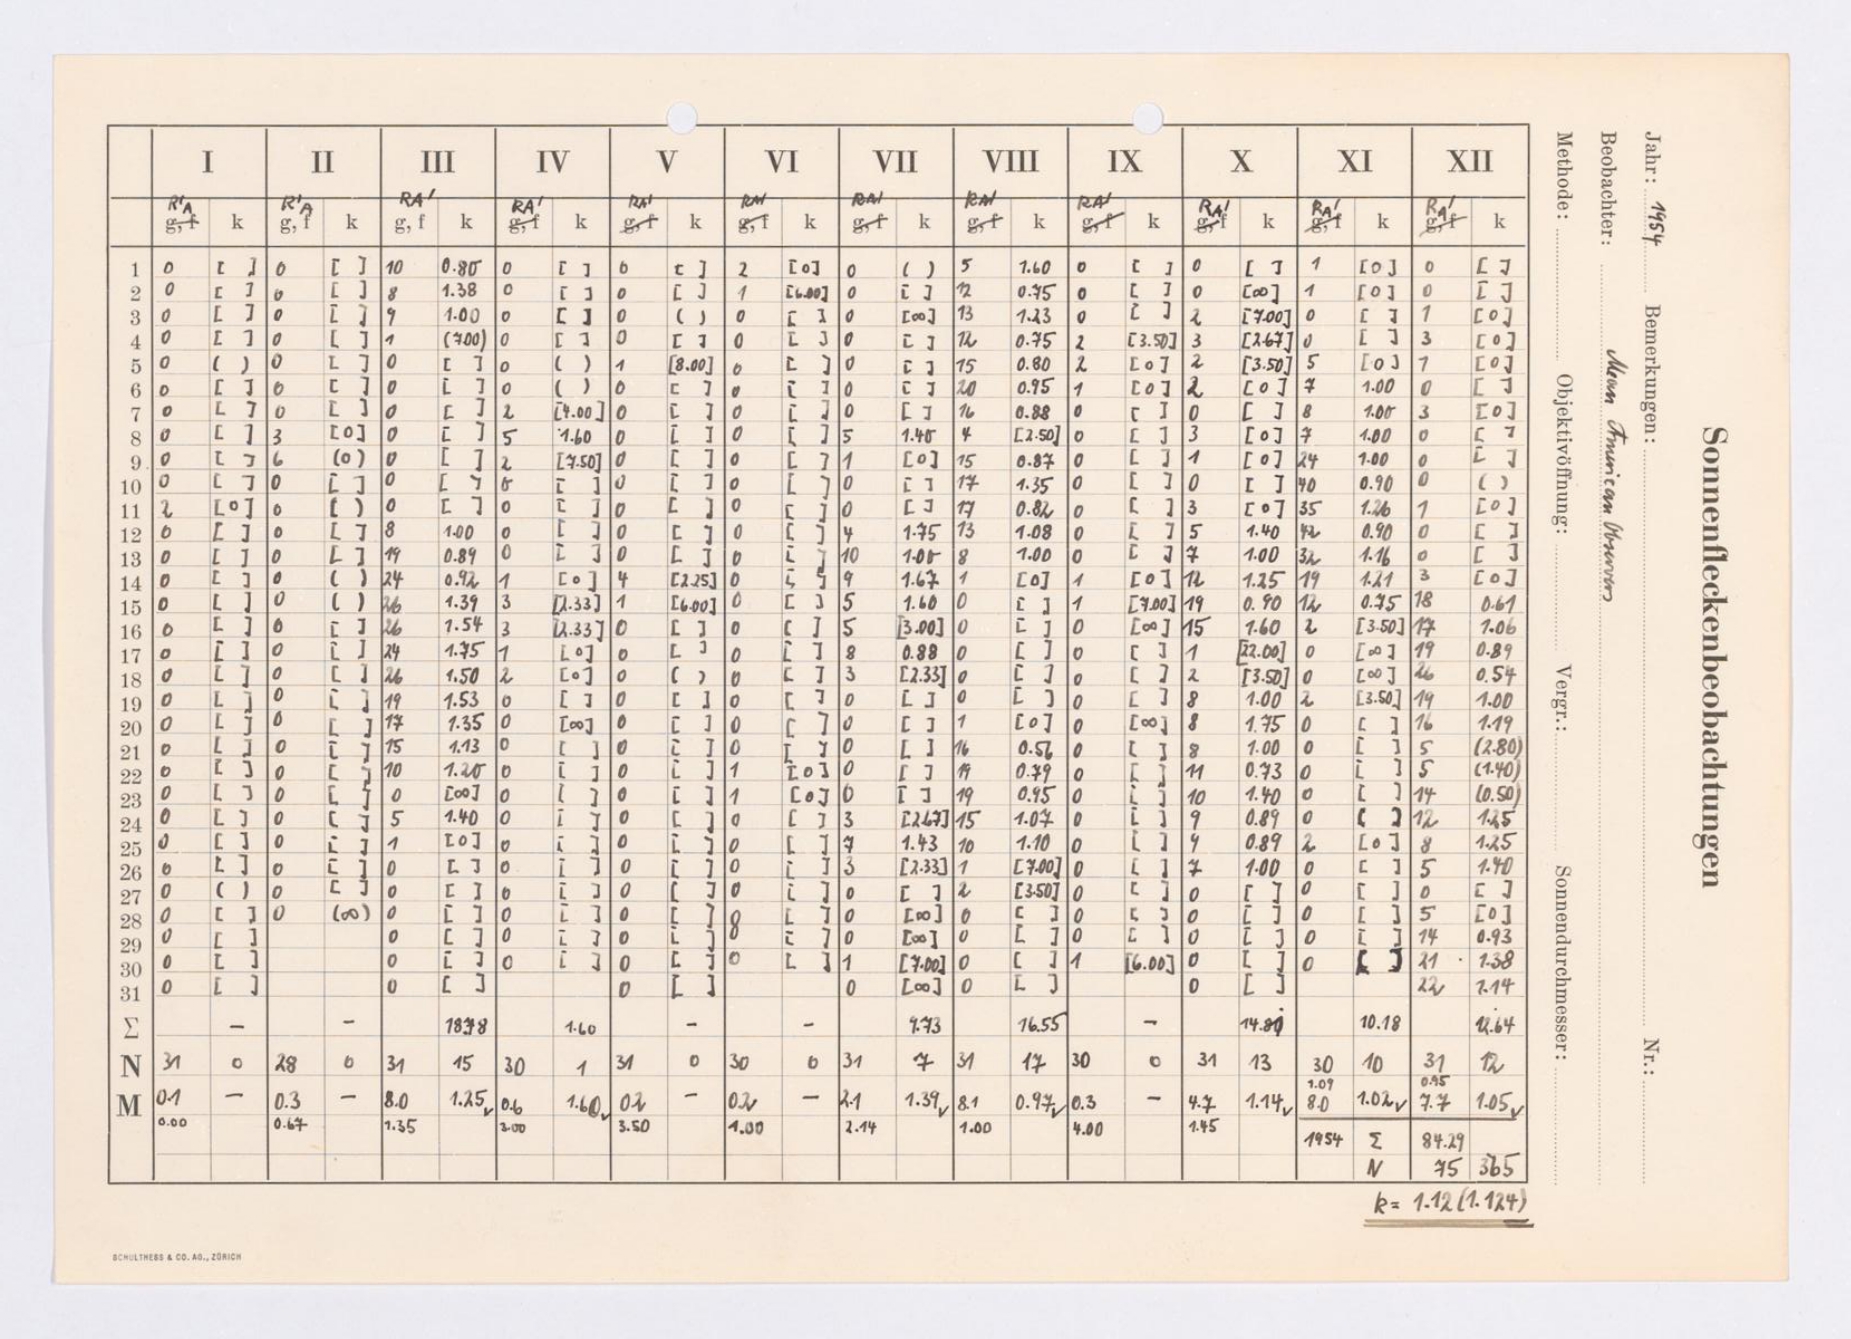 Sonnenfleckenbeobachtungen
Jahr: 1954 Bemerkungen: Nr.:
Beobachter: Mean American Observers
Methode: Objektivöffnung: Vergr.: Sonnendurchmesser:
I II III IV V VI VII VIII IX X XI XII
R'A R'A RA' RA' RA' RA' RA' RA' RA' RA' RA' RA'
g, f k g, f k g, f k g, f k g, f k g, f k g, f k g, f k g, f k g, f k g, f k g, f k
1 0 [ ] 0 [ ] 10 0.80 0 [ ] 0 [ ] 2 [0] 0 ( ) 5 1.60 0 [ ] 0 [ ] 1 [0] 0 [ ]
2 0 [ ] 0 [ ] 8 1.38 0 [ ] 0 [ ] 1 [6.00] 0 [ ] 12 0.75 0 [ ] 0 [∞] 1 [0] 0 [ ]
3 0 [ ] 0 [ ] 9 1.00 0 [ ] 0 ( ) 0 [ ] 0 [∞] 13 1.23 0 [ ] 2 [7.00] 0 [ ] 1 [0]
4 0 [ ] 0 [ ] 1 (7.00) 0 [ ] 0 [ ] 0 [ ] 0 [ ] 12 0.75 2 [3.50] 3 [2.67] 0 [ ] 3 [0]
5 0 ( ) 0 [ ] 0 [ ] 0 ( ) 1 [8.00] 0 [ ] 0 [ ] 15 0.80 2 [0] 2 [3.50] 5 [0] 1 [0]
6 0 [ ] 0 [ ] 0 [ ] 0 ( ) 0 [ ] 0 [ ] 0 [ ] 20 0.95 1 [0] 2 [0] 7 1.00 0 [ ]
7 0 [ ] 0 [ ] 0 [ ] 2 [4.00] 0 [ ] 0 [ ] 0 [ ] 16 0.88 0 [ ] 0 [ ] 8 1.00 3 [0]
8 0 [ ] 3 [0] 0 [ ] 5 1.60 0 [ ] 0 [ ] 5 1.40 4 [2.50] 0 [ ] 3 [0] 7 1.00 0 [ ]
9 0 [ ] 6 (0) 0 [ ] 2 [7.50] 0 [ ] 0 [ ] 1 [0] 15 0.87 0 [ ] 1 [0] 24 1.00 0 [ ]
10 0 [ ] 0 [ ] 0 [ ] 0 [ ] 0 [ ] 0 [ ] 0 [ ] 17 1.35 0 [ ] 0 [ ] 40 0.90 0 ( )
11 2 [0] 0 ( ) 0 [ ] 0 [ ] 0 [ ] 0 [ ] 0 [ ] 17 0.82 0 [ ] 3 [0] 35 1.26 1 [0]
12 0 [ ] 0 [ ] 8 1.00 0 [ ] 0 [ ] 0 [ ] 4 1.75 13 1.08 0 [ ] 5 1.40 42 0.90 0 [ ]
13 0 [ ] 0 [ ] 19 0.89 0 [ ] 0 [ ] 0 [ ] 10 1.00 8 1.00 0 [ ] 7 1.00 32 1.16 0 [ ]
14 0 [ ] 0 ( ) 24 0.92 1 [0] 4 [2.25] 0 [ ] 9 1.67 1 [0] 1 [0] 12 1.25 19 1.21 3 [0]
15 0 [ ] 0 ( ) 26 1.39 3 [2.33] 1 [6.00] 0 [ ] 5 1.60 0 [ ] 1 [7.00] 19 0.90 12 0.75 18 0.61
16 0 [ ] 0 [ ] 26 1.54 3 [2.33] 0 [ ] 0 [ ] 5 [3.00] 0 [ ] 0 [∞] 15 1.60 2 [3.50] 17 1.06
17 0 [ ] 0 [ ] 24 1.75 1 [0] 0 [ ] 0 [ ] 8 0.88 0 [ ] 0 [ ] 1 [22.00] 0 [∞] 19 0.89
18 0 [ ] 0 [ ] 26 1.50 2 [0] 0 ( ) 0 [ ] 3 [2.33] 0 [ ] 0 [ ] 2 [3.50] 0 [∞] 26 0.54
19 0 [ ] 0 [ ] 19 1.53 0 [ ] 0 [ ] 0 [ ] 0 [ ] 0 [ ] 0 [ ] 8 1.00 2 [3.50] 19 1.00
20 0 [ ] 0 [ ] 17 1.35 0 [∞] 0 [ ] 0 [ ] 0 [ ] 1 [0] 0 [∞] 8 1.75 0 [ ] 16 1.19
21 0 [ ] 0 [ ] 15 1.13 0 [ ] 0 [ ] 0 [ ] 0 [ ] 16 0.56 0 [ ] 8 1.00 0 [ ] 5 (2.80)
22 0 [ ] 0 [ ] 10 1.20 0 [ ] 0 [ ] 1 [0] 0 [ ] 19 0.79 0 [ ] 11 0.73 0 [ ] 5 (1.40)
23 0 [ ] 0 [ ] 0 [∞] 0 [ ] 0 [ ] 1 [0] 0 [ ] 19 0.95 0 [ ] 10 1.40 0 [ ] 14 (0.50)
24 0 [ ] 0 [ ] 5 1.40 0 [ ] 0 [ ] 0 [ ] 3 [2.67] 15 1.07 0 [ ] 9 0.89 0 [ ] 12 1.25
25 0 [ ] 0 [ ] 1 [0] 0 [ ] 0 [ ] 0 [ ] 7 1.43 10 1.10 0 [ ] 9 0.89 2 [0] 8 1.25
26 0 [ ] 0 [ ] 0 [ ] 0 [ ] 0 [ ] 0 [ ] 3 [2.33] 1 [7.00] 0 [ ] 7 1.00 0 [ ] 5 1.40
27 0 ( ) 0 [ ] 0 [ ] 0 [ ] 0 [ ] 0 [ ] 0 [ ] 2 [3.50] 0 [ ] 0 [ ] 0 [ ] 0 [ ]
28 0 [ ] 0 (∞) 0 [ ] 0 [ ] 0 [ ] 0 [ ] 0 [∞] 0 [ ] 0 [ ] 0 [ ] 0 [ ] 5 [0]
29 0 [ ] 0 [ ] 0 [ ] 0 [ ] 0 [ ] 0 [∞] 0 [ ] 0 [ ] 0 [ ] 0 [ ] 14 0.93
30 0 [ ] 0 [ ] 0 [ ] 0 [ ] 0 [ ] 1 [7.00] 0 [ ] 1 [6.00] 0 [ ] 0 [ ] 21 1.38
31 0 [ ] 0 [ ] 0 [ ] 0 [∞] 0 [ ] 0 [ ] 22 1.14
Σ – – 18.78 1.60 – – 9.73 16.55 – 14.81 10.18 12.64
N 31 0 28 0 31 15 30 1 31 0 30 0 31 7 31 17 30 0 31 13 30 10 31 12
1.09 0.95
M 0.1 – 0.3 – 8.0 1.25 0.6 1.60 0.2 – 0.2 – 2.1 1.39 8.1 0.97 0.3 – 4.7 1.14 8.0 1.02 7.7 1.05
0.00 0.67 1.35 3.00 3.50 1.00 2.14 1.00 4.00 1.45
1954 Σ 84.29
N 75 365
k = 1.12 (1.124)
SCHULTHESS & CO. AG., ZÜRICH